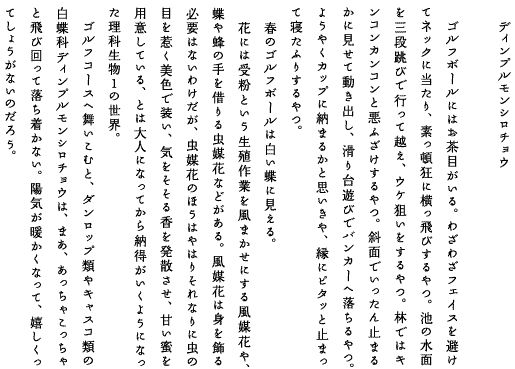 ディンプルモンシロチョウ
ゴルフボールにはお茶目がいる。わざわざフェイスを避け
てネックに当たり、素っ頓狂に横っ飛びするやつ。池の水面
を三段跳びで行って越え、ウケ狙いをするやつ。林ではキ
ンコンカンコンと悪ふざけするやつ。斜面でいったん止まる
かに見せて動き出し、滑り台遊びでバンカーへ落ちるやつ。
ようやくカップに納まるかと思いきや、縁にピタッと止まっ
て寝たふりするやつ。
春のゴルフボールは白い蝶に見える。
花には受粉という生殖作業を風まかせにする風媒花や、
蝶や蜂の手を借りる虫媒花などがある。風媒花は身を飾る
必要はないわけだが、虫媒花のほうはやはりそれなりに虫の
目を惹く美色で装い、気をそそる香を発散させ、甘い蜜を
用意している、とは大人になってから納得がいくようになっ
た理科生物1の世界。
ゴルフコースへ舞いこむと、ダンロップ類やキャスコ類の
白蝶科ディンプルモンシロチョウは、まあ、あっちゃこっちゃ
と飛び回って落ち着かない。陽気が暖かくなって、嬉しくっ
てしょうがないのだろう。